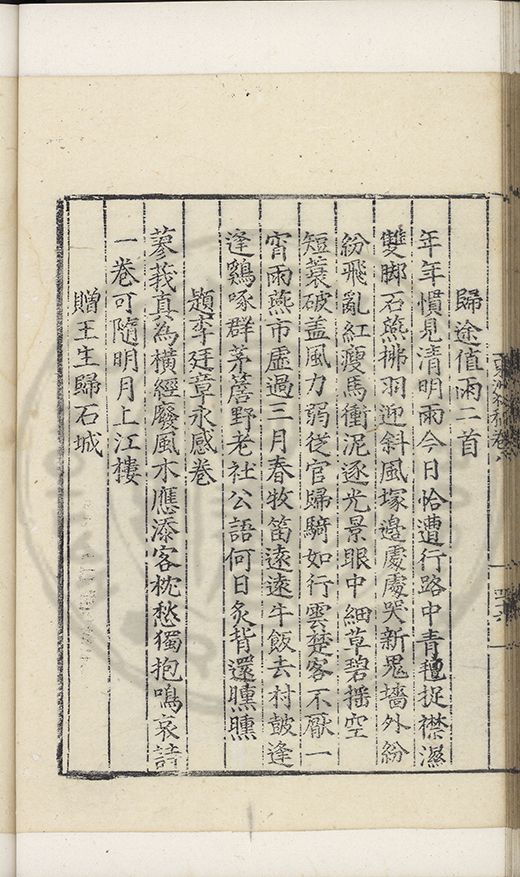 歸途值雨二首
年年慣見清明雨今日恰遭行路中青氊捉襟濕
雙脚石燕拂羽迎斜風塚邉處處哭新鬼墻外紛
紛飛亂紅瘦馬衝泥逐光景眼中細草碧揺空
短蓑破盖風力弱従官歸騎如行雲楚客不厭一
宵雨燕市虛過三月春牧笛遠遠牛飯去村皷逢
逢鷄啄群茅簷野老社公語何日炙背還曛曛
題李廷章永感卷
蓼莪真為橫經廢風木應添客枕愁獨抱鳴哀詩
一卷可隨明月上江樓
贈王生歸石城